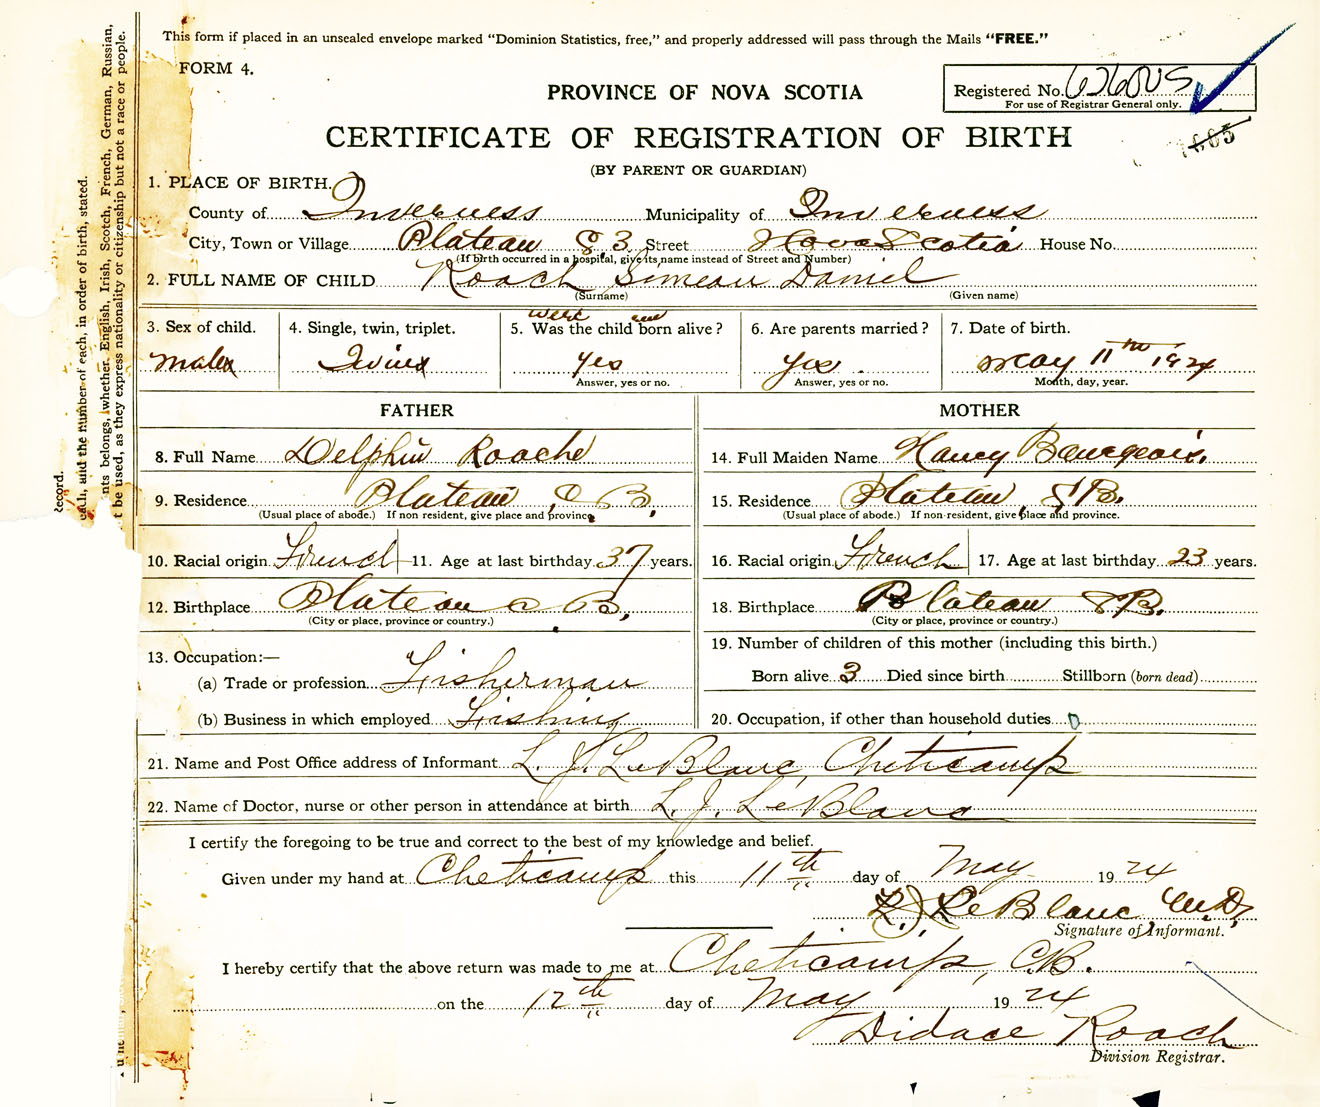 This form if placed in an unsealed envelope marked "Dominion Statistics, free," and properly addressed will pass through the Mails "FREE."
FORM 4.
Registered No.
For use of Registrar General only.
PROVINCE OF NOVA SCOTIA
1665
CERTIFICATE OF REGISTRATION OF BIRTH
(BY PARENT OR GUARDIAN)
1. PLACE OF BIRTH.
County of Inverness Municipality of Inverness
City, Town or Village Plateau Street Nova Scotia House No.
(If birth occurred in a hospital, give its name instead of Street and Number)
2. FULL NAME OF CHILD Roach Simeau Daniel
(Surname) (Given name)
were and
3. Sex of child. 4. Single, twin, triplet. 5. Was the child born alive? 6. Are parents married? 7. Date of birth.
Male Twins yes yes May 11th 1924
Answer, yes or no. Answer, yes or no. Month, day, year.
FATHER MOTHER
8. Full Name Delphin Roache 14. Full Maiden Name Nancy Bourgeois.
9. Residence Plateau, C B, 15. Residence Plateau, C B.
(Usual place of abode.) If non resident, give place and province. (Usual place of abode.) If non-resident, give place and province.
10. Racial origin French 11. Age at last birthday 37 years. 16. Racial origin French 17. Age at last birthday 23 years.
12. Birthplace Plateau C B, 18. Birthplace Plateau C B.
(City or place, province or country.) (City or place, province or country.)
19. Number of children of this mother (including this birth.)
13. Occupation:—
Born alive 3 Died since birth Stillborn (born dead)
(a) Trade or profession Fisherman
(b) Business in which employed Fishing 20. Occupation, if other than household duties
21. Name and Post Office address of Informant L. J. LeBlanc, Cheticamp
22. Name of Doctor, nurse or other person in attendance at birth L. J. LeBlanc
I certify the foregoing to be true and correct to the best of my knowledge and belief.
Given under my hand at Cheticamp this 11th day of May 1924
L. J. LeBlanc, M.D.
Signature of Informant.
I hereby certify that the above return was made to me at Cheticamp, C.B.
on the 12th day of May 1924
Didace Roach
Division Registrar.
ead, and the number of each, in order of birth, stated.
nts belongs, whether English, Irish, Scotch, French, German, Russian,
t be used, as they express nationality or citizenship but not a race or people.